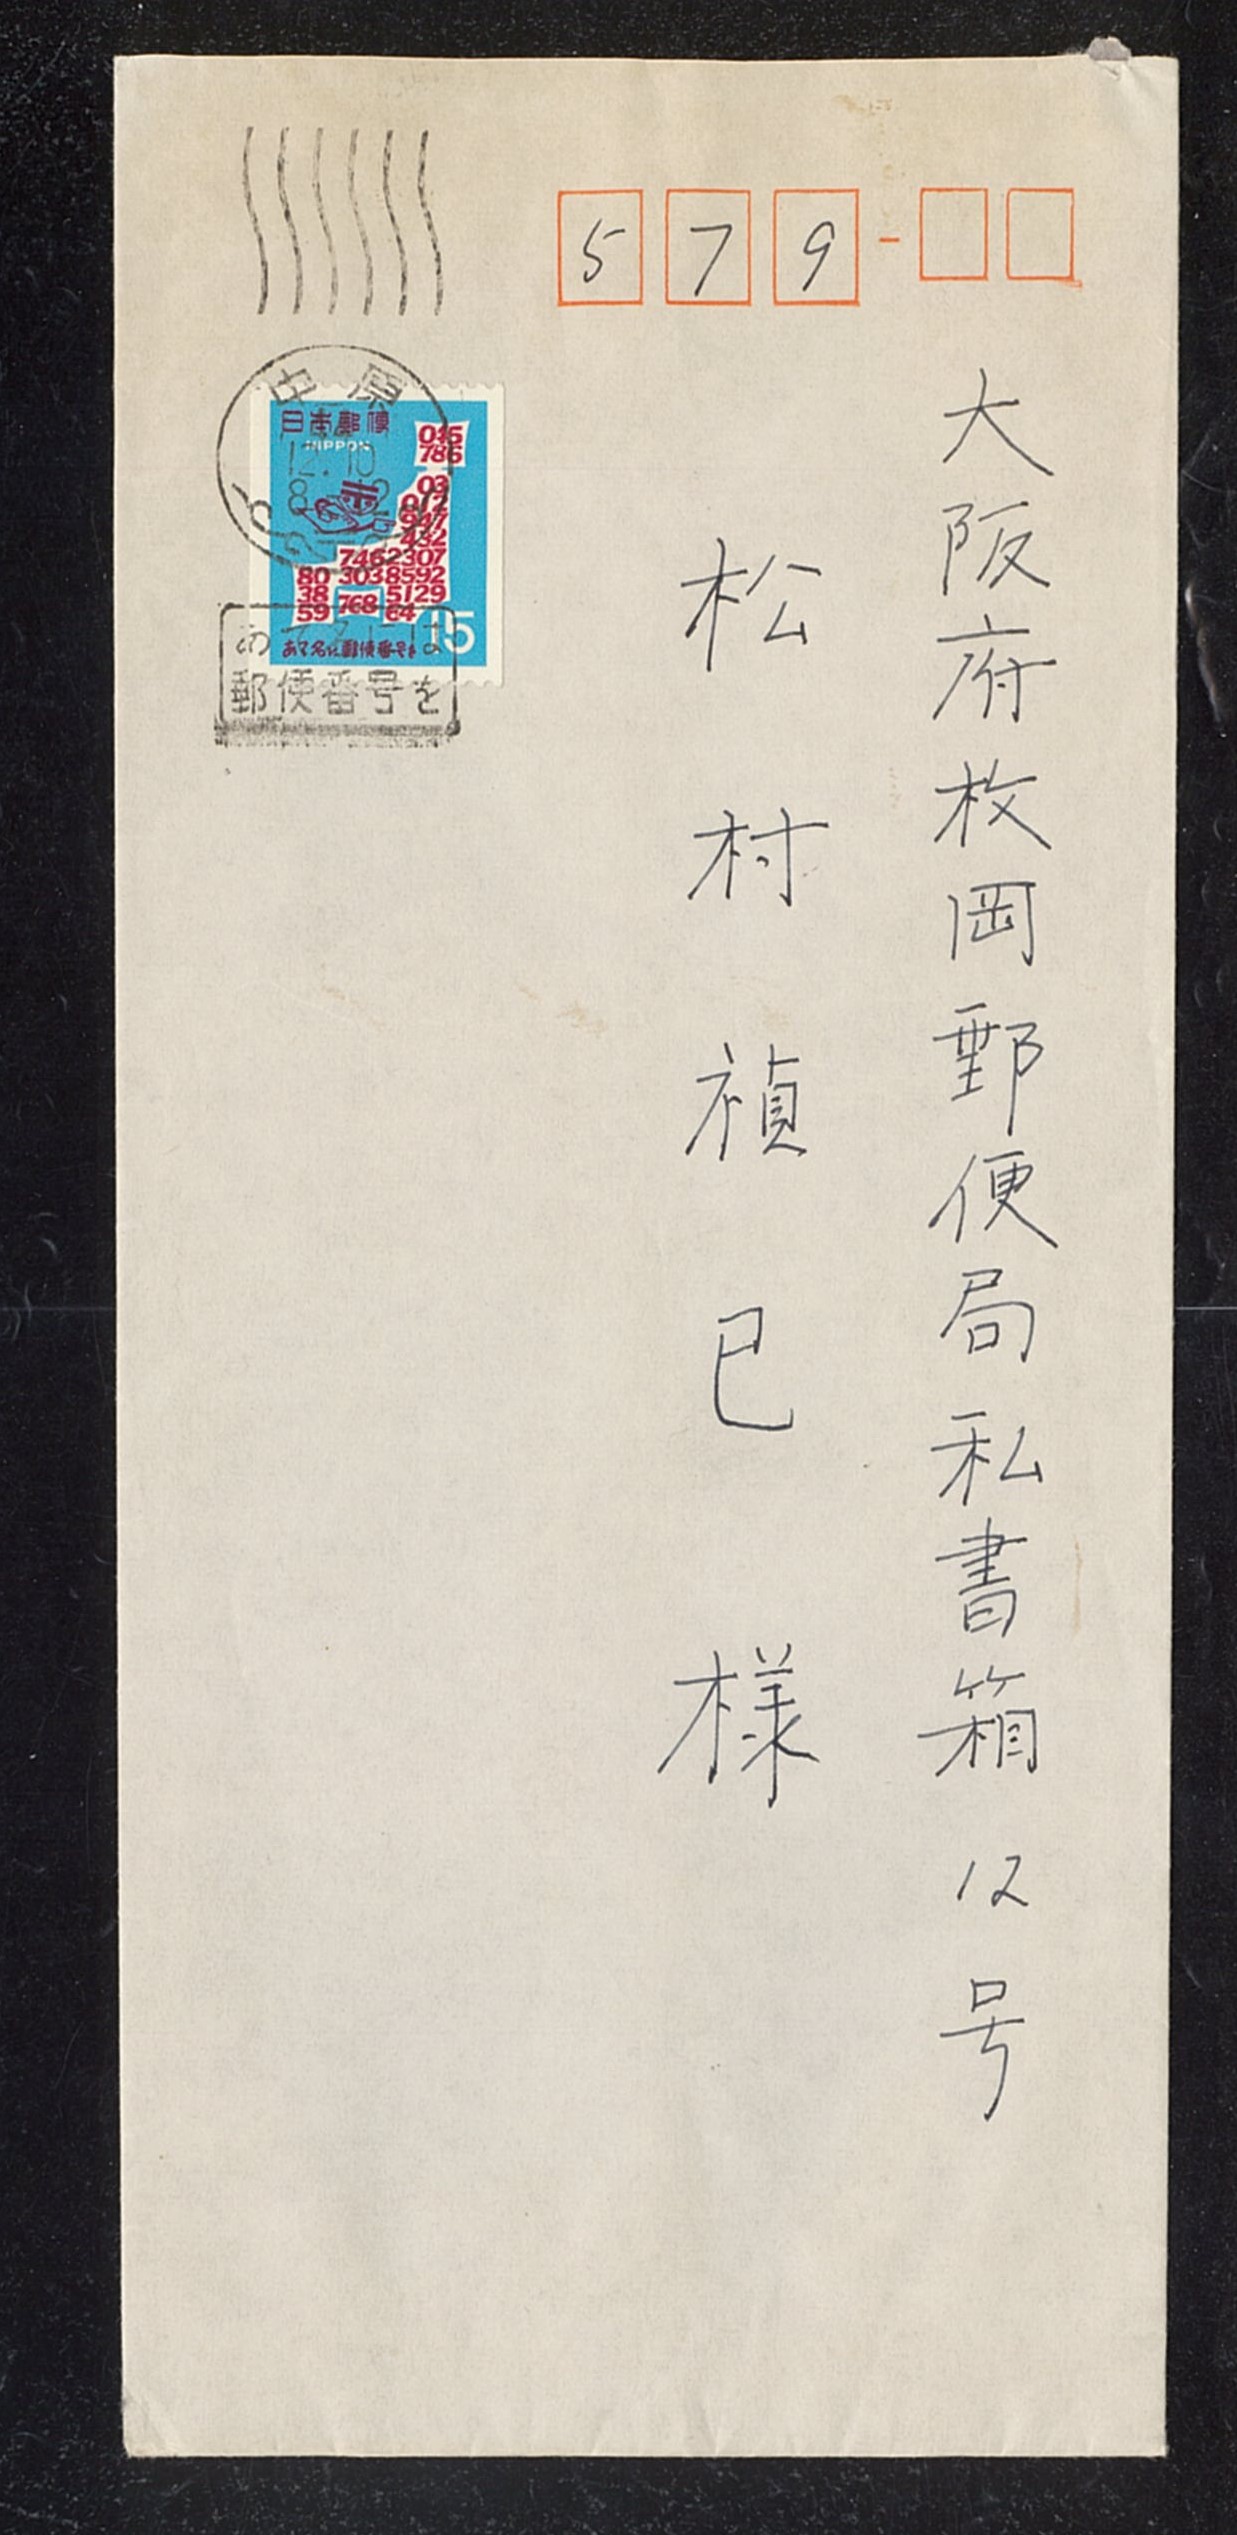 579
大阪府枚岡郵便局私書箱12号
松村禎巳様
中原
12.10
日本郵便
NIPPON
015
786
03
012
947
432
7462307
80 3038592
38 5129
59 768 64
15
あて名に郵便番号を
あて名には
郵便番号を